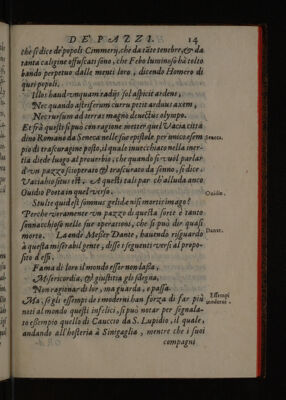 DE PAZZI. 14
che si dice de' popoli Cimmerij, che da tāte tenebre, & da
tanta caligine offuscati sono, che Febo luminoso hà tolto
bando perpetuo dalle menti loro, dicendo Homero di
quei popoli.
Illos haud vnquam radijs sol aspicit ardens,
Nec quando astriferum curru petit arduus axem,
Nec rursum ad terras magno deuectus olympo.
Et frà questi si può con ragione metter quel Vacia cittadino
Romano da Seneca nelle sue epistole per unico esem
Seneca.
pio di trascuragine posto, il quale inuecchiato nella iner-
tia diede luogo al prouerbio, che quando si vuol parlar
d'vn pazzo scioperato & trascurato da senno, si dice:
Vatia hic situs est. A questi tali par ch'alluda anco
Ouidio Poeta in quel verso.
Ouidio.
Stulte quid est somnus gelidæ nisi mortis imago?
Perche veramente vn pazzo di questa sorte è tanto
sonnacchioso nelle sue operationi, che si può dir quasi
morto. La onde Messer Dante, hauendo risguardo
Dante.
à questa miserabil gente, disse i seguenti versi al propo-
sito d'essi.
Fama di loro il mondo esser non lassa,
Misericordia, & giustitia gli sdegna,
Non ragionar di lor, ma guarda, e passa.
Ma, se gli essempi de i moderni han forza di far più
Essempi moderni.
noti al mondo questi infelici, si può notar per segnala-
to essempio quello di Cauccio da S. Lupidio, il quale,
andando all'hosteria à Sinigaglia, mentre che i suoi
compagni